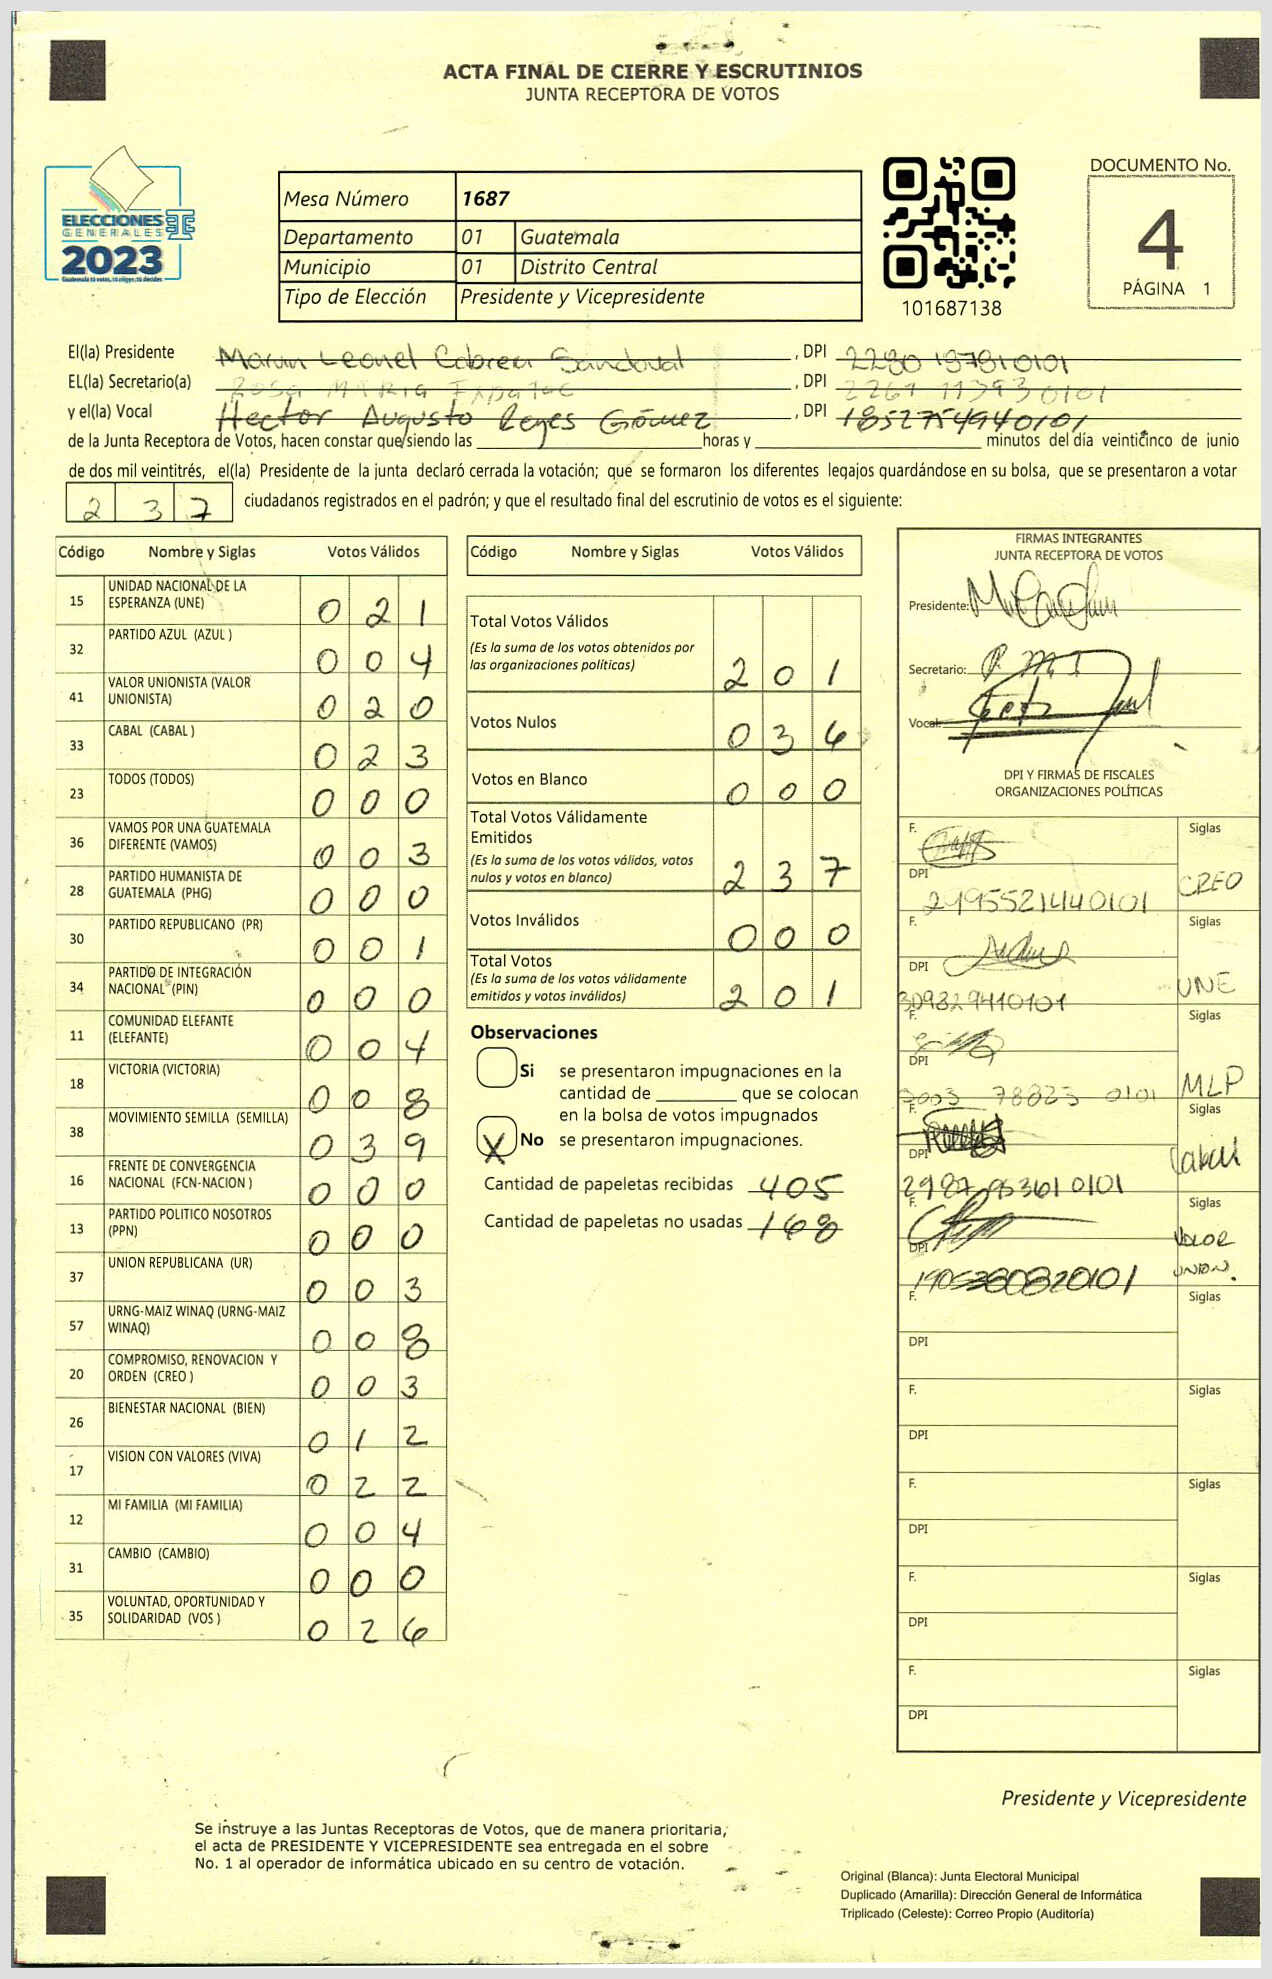 ACTA FINAL DE CIERRE Y ESCRUTINIOS
JUNTA RECEPTORA DE VOTOS
ELECCIONES
GENERALES
2023
Mesa Número 1687
Departamento 01 Guatemala
Municipio 01 Distrito Central
Tipo de Elección Presidente y Vicepresidente
101687138
DOCUMENTO No.
4
PÁGINA 1
El(la) Presidente Leonel Cabrera Sandoval, DPI
EL(la) Secretario(a) Rosa Maria, DPI
y el(la) Vocal Hector Augusto Reyes Gómez, DPI 1852754940101
de la Junta Receptora de Votos, hacen constar que siendo las horas y minutos del día veinticinco de junio
de dos mil veintitrés, el(la) Presidente de la junta declaró cerrada la votación; que se formaron los diferentes legajos quardándose en su bolsa, que se presentaron a votar
2 3 7 ciudadanos registrados en el padrón; y que el resultado final del escrutinio de votos es el siguiente:
Código Nombre y Siglas Votos Válidos
15 UNIDAD NACIONAL DE LA ESPERANZA (UNE) 0 2 1
32 PARTIDO AZUL (AZUL ) 0 0 4
41 VALOR UNIONISTA (VALOR UNIONISTA) 0 2 0
33 CABAL (CABAL ) 0 2 3
23 TODOS (TODOS) 0 0 0
36 VAMOS POR UNA GUATEMALA DIFERENTE (VAMOS) 0 0 3
28 PARTIDO HUMANISTA DE GUATEMALA (PHG) 0 0 0
30 PARTIDO REPUBLICANO (PR) 0 0 1
34 PARTIDO DE INTEGRACIÓN NACIONAL (PIN) 0 0 0
11 COMUNIDAD ELEFANTE (ELEFANTE) 0 0 4
18 VICTORIA (VICTORIA) 0 0 8
38 MOVIMIENTO SEMILLA (SEMILLA) 0 3 9
16 FRENTE DE CONVERGENCIA NACIONAL (FCN-NACION ) 0 0 0
13 PARTIDO POLITICO NOSOTROS (PPN) 0 0 0
37 UNION REPUBLICANA (UR) 0 0 3
57 URNG-MAIZ WINAQ (URNG-MAIZ WINAQ) 0 0 8
20 COMPROMISO, RENOVACION Y ORDEN (CREO ) 0 0 3
26 BIENESTAR NACIONAL (BIEN) 0 1 2
17 VISION CON VALORES (VIVA) 0 2 2
12 MI FAMILIA (MI FAMILIA) 0 0 4
31 CAMBIO (CAMBIO) 0 0 0
35 VOLUNTAD, OPORTUNIDAD Y SOLIDARIDAD (VOS ) 0 2 6
Código Nombre y Siglas Votos Válidos
Total Votos Válidos
(Es la suma de los votos obtenidos por las organizaciones políticas) 2 0 1
Votos Nulos 0 3 6
Votos en Blanco 0 0 0
Total Votos Válidamente Emitidos
(Es la suma de los votos válidos, votos nulos y votos en blanco) 2 3 7
Votos Inválidos 0 0 0
Total Votos
(Es la suma de los votos válidamente emitidos y votos inválidos) 2 0 1
Observaciones
Si se presentaron impugnaciones en la
cantidad de que se colocan
en la bolsa de votos impugnados
X No se presentaron impugnaciones.
Cantidad de papeletas recibidas 405
Cantidad de papeletas no usadas 168
FIRMAS INTEGRANTES
JUNTA RECEPTORA DE VOTOS
Presidente:
Secretario:
Vocal:
DPI Y FIRMAS DE FISCALES
ORGANIZACIONES POLÍTICAS
F. Siglas
DPI CREO
F. Siglas
DPI UNE
F. Siglas
DPI MLP
F. Siglas
DPI Cabal
F. Siglas
DPI VALOR UNION.
F. Siglas
DPI
F. Siglas
DPI
F. Siglas
DPI
F. Siglas
DPI
F. Siglas
DPI
Presidente y Vicepresidente
Se instruye a las Juntas Receptoras de Votos, que de manera prioritaria,
el acta de PRESIDENTE Y VICEPRESIDENTE sea entregada en el sobre
No. 1 al operador de informática ubicado en su centro de votación.
Original (Blanca): Junta Electoral Municipal
Duplicado (Amarilla): Dirección General de Informática
Triplicado (Celeste): Correo Propio (Auditoría)